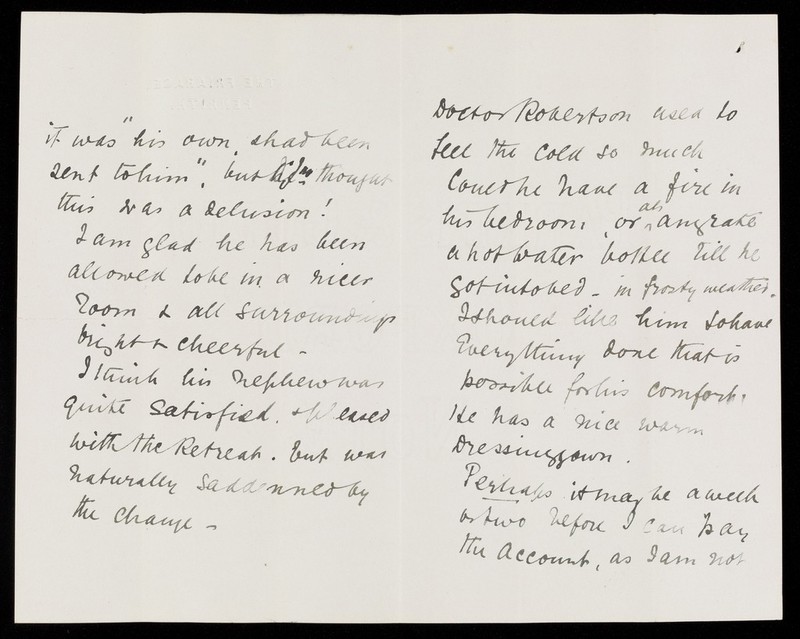 it was "his own, & had been
sent to him", but thought
this was a delusion!
I am glad he has been
allowed to be in a nicer
Room & all surroundings
bright & cheerful -
I think his nephew was
quite satisfied. & pleased
with the Retreat. but was
naturally saddenned by
the change -
Doctor Robertson used to
feel the cold so much
Could he have a fire in
his bedroom, or at any rate
a hot water bottle till he
got into bed - in frosty weather.
I should like him to have
Everything done that is
possible for his comfort.
He has a nice warm
Dressing gown.
Perhaps it may be a week
or two before I can pay
the Account, as I am not